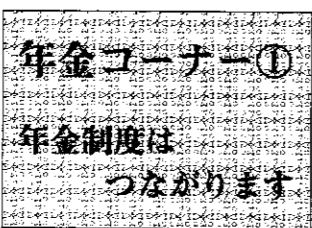 年金コーナー①
年金制度は
つながります